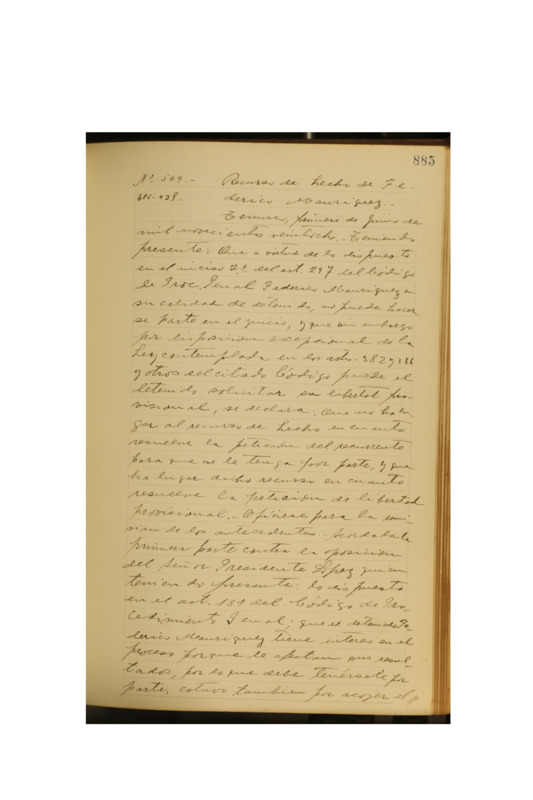 885
Nº 569.- Recurso de hecho de Fe-
derico Manriquez.-
Temuco, primero de Junio de
mil novecientos veintiocho.- Teniendo
presente: Que a virtud de lo dispuesto
en el inciso 2º del art. 297 del Código
de Proc. Penal Federico Manriquez en
su calidad de detenido, no puede hacer
se parte en el juicio, y que sin embargo
por disposicion excepcional de la
Ley contemplada en los arts. 382 y 386
y otros del citado Código puede el
detenido solicitar su libertad pro-
visional, se declara: Que no ha lu-
gar al recurso de hecho en cuanto
resuelve la peticion del recurrente
para que se le tenga por parte, y que
ha lugar dicho recurso en cuanto
resuelve la peticion de libertad
provisional.- Ofíciese para la remi-
sion de los antecedentes. Acordada la
primera parte contra la oposicion
del Señor Presidente Lopez quien
teniendo presente: lo dispuesto
en el art. 139 del Código de Pro-
cedimiento Penal; que el detenido Fe-
derico Manriquez tiene interes en el
proceso porque le afectan sus resul-
tados, por lo que debe tenérsele por
parte, estuvo tambien por acojer el